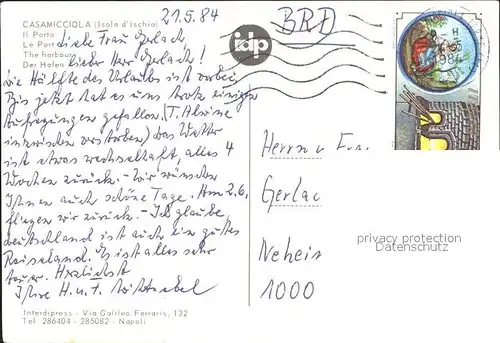 21.5.84
BRD
CASAMICCIOLA (Isola d'Ischia)
Il Porto
Le Port
The harbour
Der Hafen
idp
Liebe Frau Gerlach
lieber Herr Gerlach!
Die Hälfte des Urlaubs ist vorbei,
Bis jetzt hat es uns trotz einigen
Aufregungen gefallen. (T. Alwine
inzwischen verstorben) das Wetter
ist etwas wechselhaft, alles 4
Wochen zurück. - Wir wünschen
Ihnen auch schöne Tage. Am 2.6.
fliegen wir zurück. - Ich glaube
Deutschland ist auch ein gutes
Reiseland. Es ist alles sehr
teuer. Herzlichst
Ihre H. u. T.
Herrn u Fra
Gerlac
Neheim
1000
privacy protection
Datenschutz
Interdipress - Via Galileo Ferraris, 132
Tel. 286404 - 285082 - Napoli